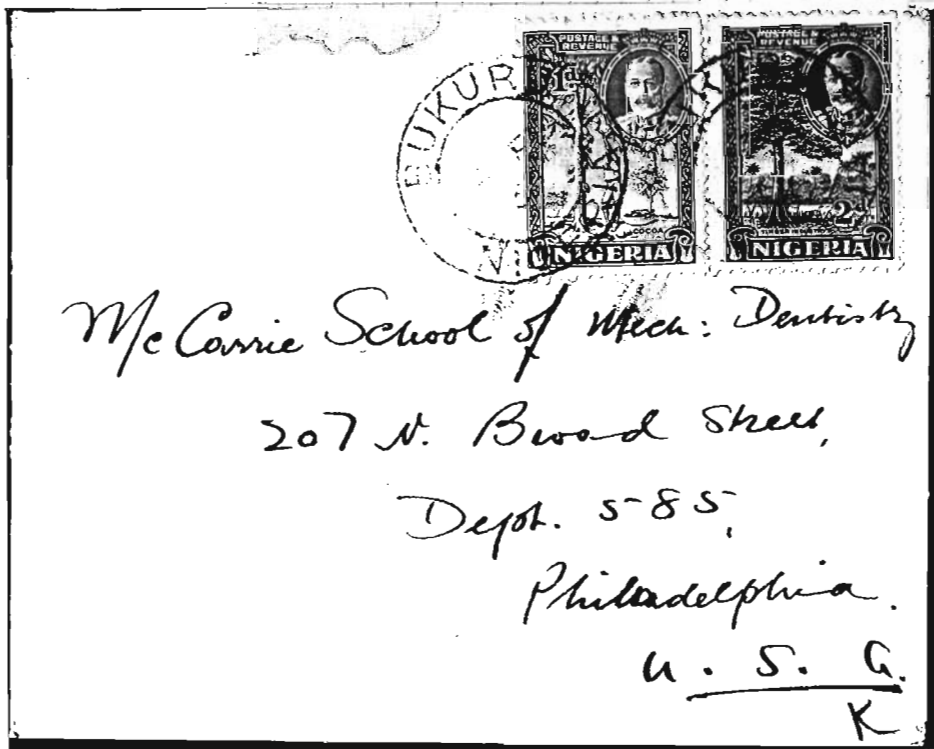 POSTAGE & REVENUE
1d
COCOA
NIGERIA
POSTAGE & REVENUE
2d
TIMBER INDUSTRY
NIGERIA
BUKURU
McCarrie School of Mech: Dentistry
207 N. Broad Street,
Dept. 585,
Philadelphia.
U. S. A.
K